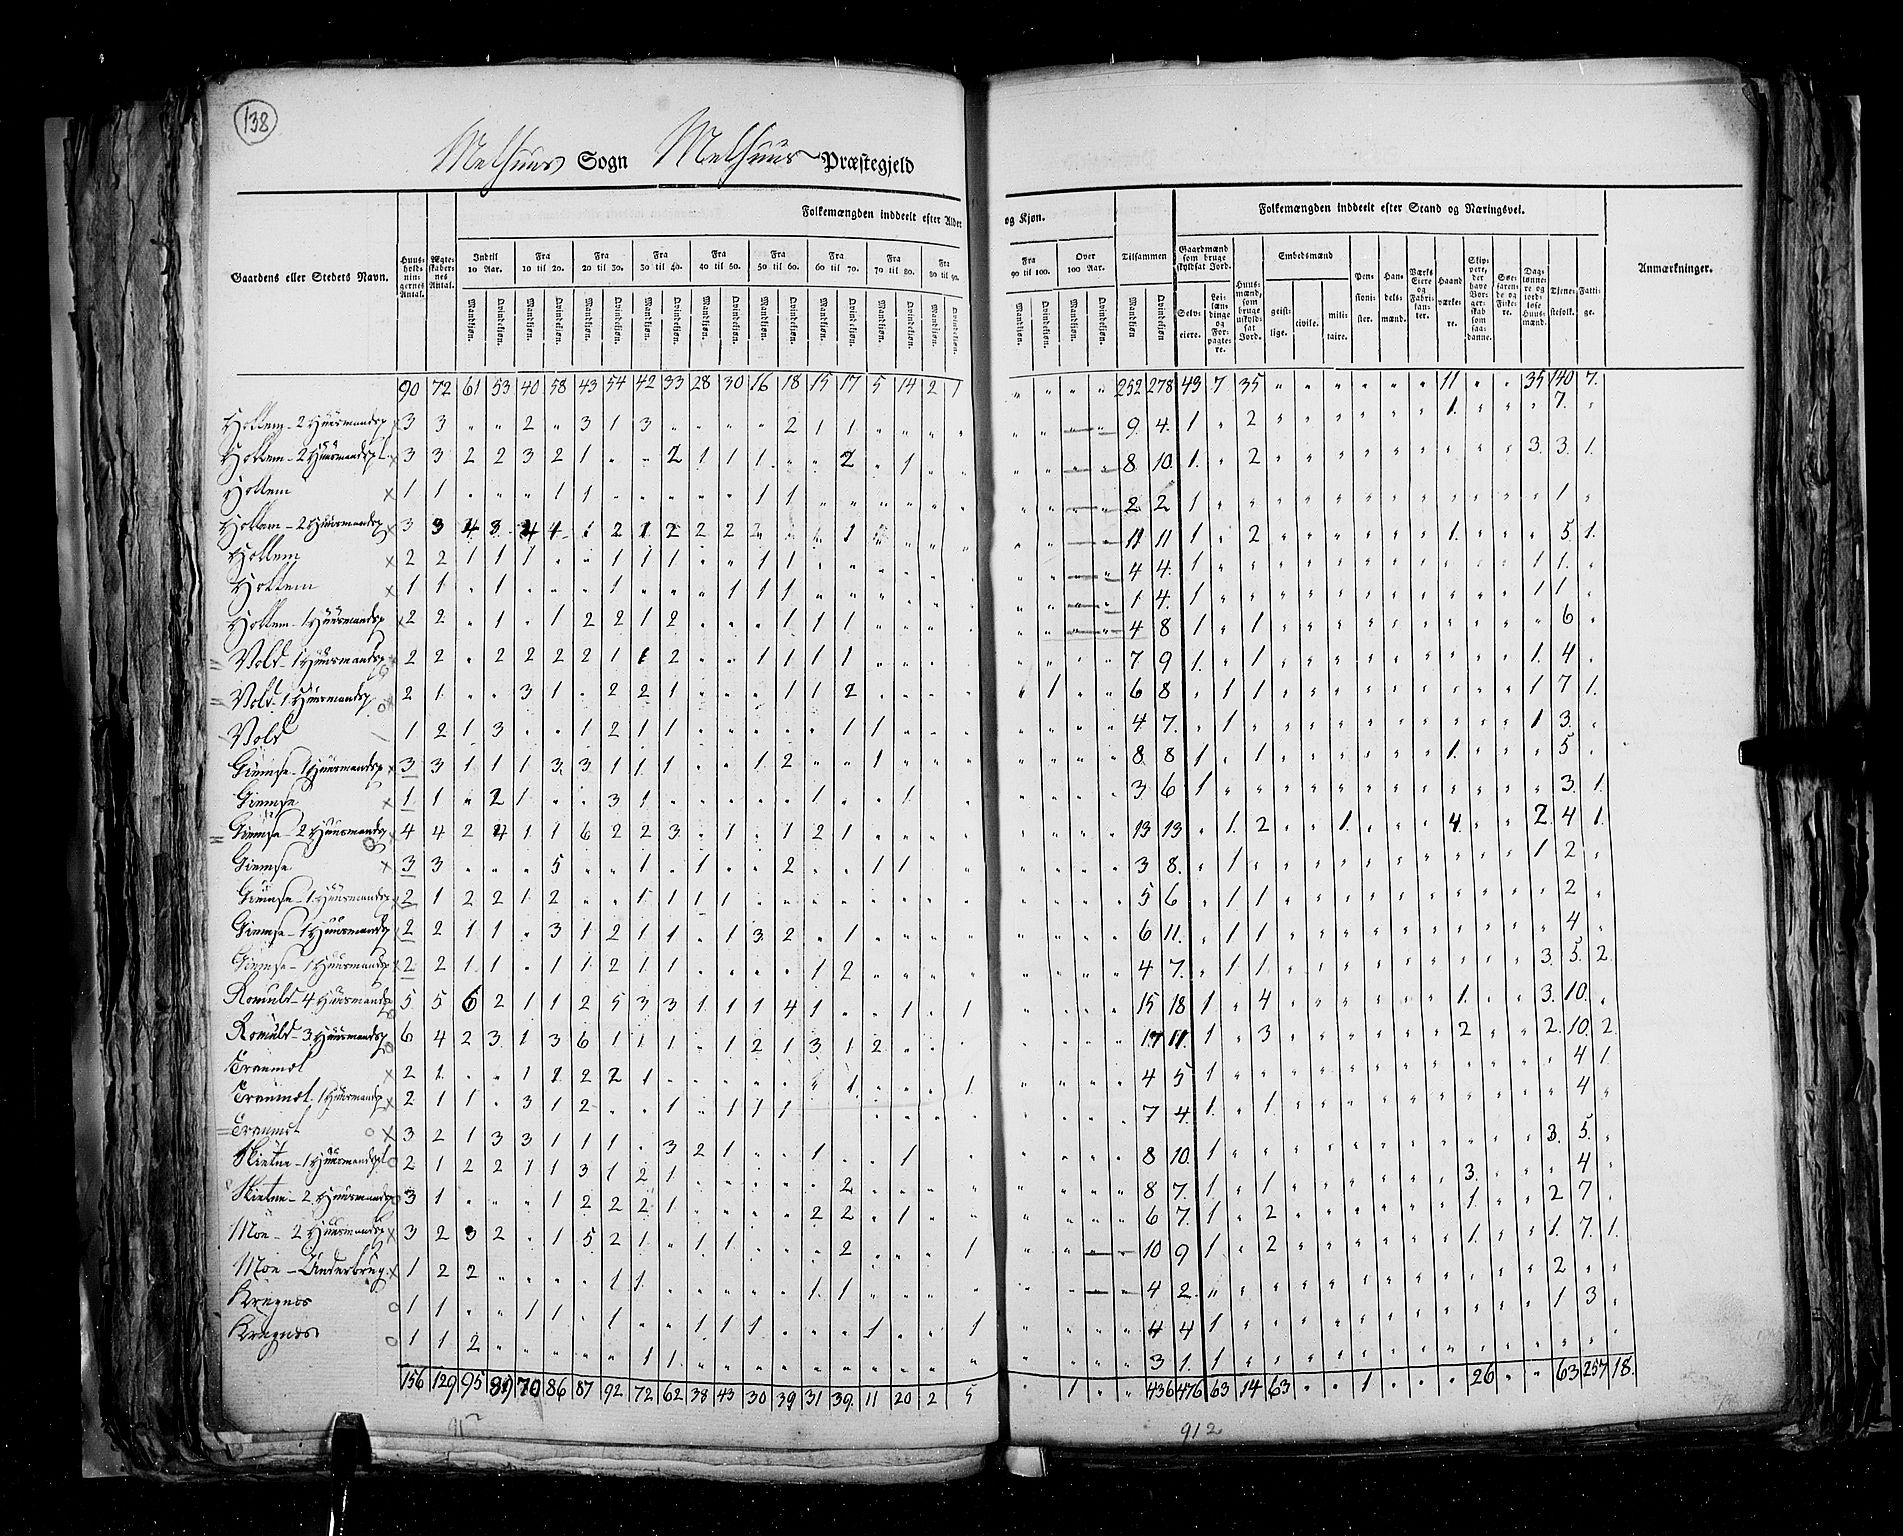 138
Melhuus Sogn Melhuus Præstegjeld
Gaardens eller Steders Navn.
Huusholdningernes Antal.
Ægteskabernes Antal.
Folkemængden inddeelt efter Alder og Kjøn.
Indtil 10 Aar.
Fra 10 til 20.
Fra 20 til 30.
Fra 30 til 40.
Fra 40 til 50.
Fra 50 til 60.
Fra 60 til 70.
Fra 70 til 80.
Fra 80 til 90.
Fra 90 til 100.
Over 100 Aar.
Mandkjøn. Qvindekjøn.
Tilsammen
Mandkjøn Qvindekjøn.
Folkemængden inddeelt efter Stand og Næringsvei.
Gaardmænd som bruge skyldsat Jord.
Selveiere.
Leilændinge og Forpagtere.
Huusmænd, som bruge uskyldsat Jord.
Embedsmænd
geistlige. civile. militaire.
Pensionister.
Handelsmænd.
Værks Eiere og Fabrikanter.
Haandværkere.
Skippere, der have Borgerskab som saadanne.
Søfarende og Fiskere.
Daglønnere og jordløse Huusmænd.
Tjenestefolk.
Fattige.
Anmærkninger.
90 72 61 53 40 58 43 54 42 33 28 30 16 18 15 17 5 14 2 1 " " " " 252 278 49 7 35 " " " " " " 11 " " 35 140 7.
Hollem - 2 Huusmandsp x 3 3 " " 2 " 3 1 3 " " " " 2 1 1 " " " " 9. 4. 1 " 2 1. 7.
Hollem - 2 Huusmandspl x 3 3 2 2 3 2 1 " " 2 1 1 1 " " 2 " 1 " " 8 10. 1. " 2 3. 3. 1.
Hollem x 1 1 " " " 1 1 " " " " " 1 1 " " " " " " 2 2 1 1
Hollem - 2 Huusmandsp x 3 3 4 3 4 1 1 2 1 2 2 2 1 11 11 1 " 2 1. 5. 1.
Hollem x 2 2 1 1 1 " " 1 1 1 " " 1 1 4 4. 1 1 1.
Hollem x 1 1 " 1 " " " 1 " " " 1 1 1 1 4. 1 1 1
Hollem - 1 Huusmandsp x 2 2 " 1 " 1 2 2 1 2 " " " 1 1 1 4 8 1 " 1 6
Vold - 1 Huusmandsp 2 2 " 2 2 2 2 1 1 2 " " 1 1 1 1 7 9 1. " 1 1. 4
Vold - 1 Huusmandsp 2 1 " " 3 1 " 2 2 1 " " " 1 1 2 " 1 6 8 " 1 1 1 7 1.
Vold 1 2 1 3 " " 1 2 1 1 " " " " " 1 1 4 7. " 1 1 3.
Gimse - 1 Huusmandsp x 3 3 1 1 1 3 3 1 1 1 " " 1 2 " " 1 8 8 1 " 1 1. 5
Gimse x 1 1 " 2 1 " " 3 1 " " " " " 1 " " 1 3 6 1 3. 1.
Gimse 2 Huusmandsp 4 4 2 4 1 1 6 2 2 3 " 1 " 1 2 1 13 13. " 1. 2 " " 1. 4. 2 4 1.
Gimse x 3 3 " " " 5 " " 1 " 1 " " 2 " " 1 1 3 8. " 1 1 2
Gimse - 1 Huusmandsp x 2 1 2 2 1 2 " " 1 1 1 1 5 6 " 1 1 2
Gimse - 1 Huusmandsp 2 2 1 1 " 3 1 2 1 1 " 1 3 2 " 1 6 11. " 1 1 4
Gimse - 1 Huusmandsp x 2 2 1 1 " 1 1 2 1 1 " " " " 1 2 4 7. " 1 1 3. 5. 2.
Romuld - 4 Huusmandsp 5 5 6 2 1 1 2 5 3 3 1 1 1 4 1 " " 1 " 1 15 18 1 " 4 1. 3. 10.
Romuld - 3 Huusmandsp 6 4 2 3. 1 3 6 1 1 1 " 1 2 1 3 1 2 17 11. 1 " 3 2 2. 10. 2.
Tranmæl x 2 1. " " 1 1 2 2 1 " " " " " " 1 " " " 1 4 5 1 4 1
Tranmæl 1 Huusmandsp x 2 1 1 " 3 1 2 " " 1 " 1 1 1 7 4. 1. " 1. 4
Tranmæl o x 3 2 1 3 3 1 1 1 " 3 2 1 " " 1 " " 1 8 10. 1 3. 5.
Skjetne - 1 Huusmandspl 2 1 2 2 1 1 3 1 2 1 " " " " " 2 8 7. 1 " 1 3. 4
Skjetne - 2 Huusmandsp 3 1 " " " 1 2 2 2 1 " " " " 2 2 " 1 6 7. 1 " 2 1. 2 7
Moe - 2 Huusmandsp x 3 2 3 2 " 1 5 2 1 " 1 1 " " " 2 " " " 1 10 9 1 " 2 1. 1. 7. 1.
Moe - Underbrug x 1 2 2 " " " " 1 1 " " " " " 1 1 4 2. " 2
Kregnæs o 1 1 " " 1 1 " 1 " " 1 1 1 " " " 1 " " 1 4 4 1 1 3
Kregnæs o 1 1 2 " " " " " 1 1 3 1. 1
156 129 95 89 70 86 87 92 72 62 38 43 30 39 31 39. 11 20 2 5 " 1 " " 436 476 63 14 63 " " 1 " " " 26 " " 63 257 18.
912
912